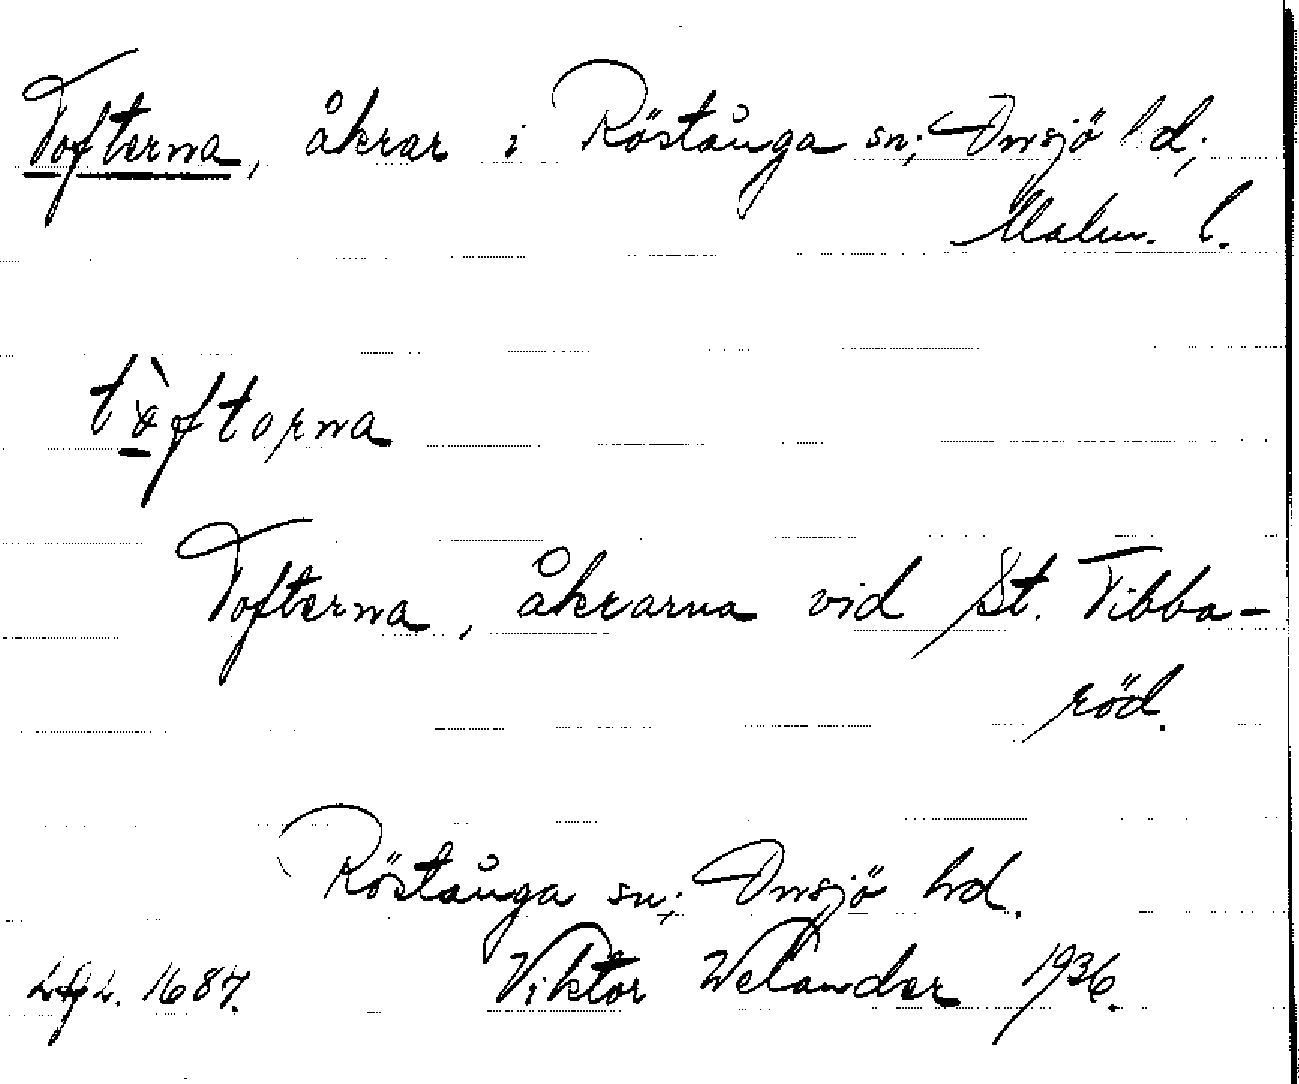 Tofterna, åkrar i Röstånga sn; Onsjö hd;
Malm. l.
tòftorna
Tofterna, åkrarna vid St. Tibba-
röd.
Röstånga sn; Onsjö hd.
Viktor Welander 1936.
1687.